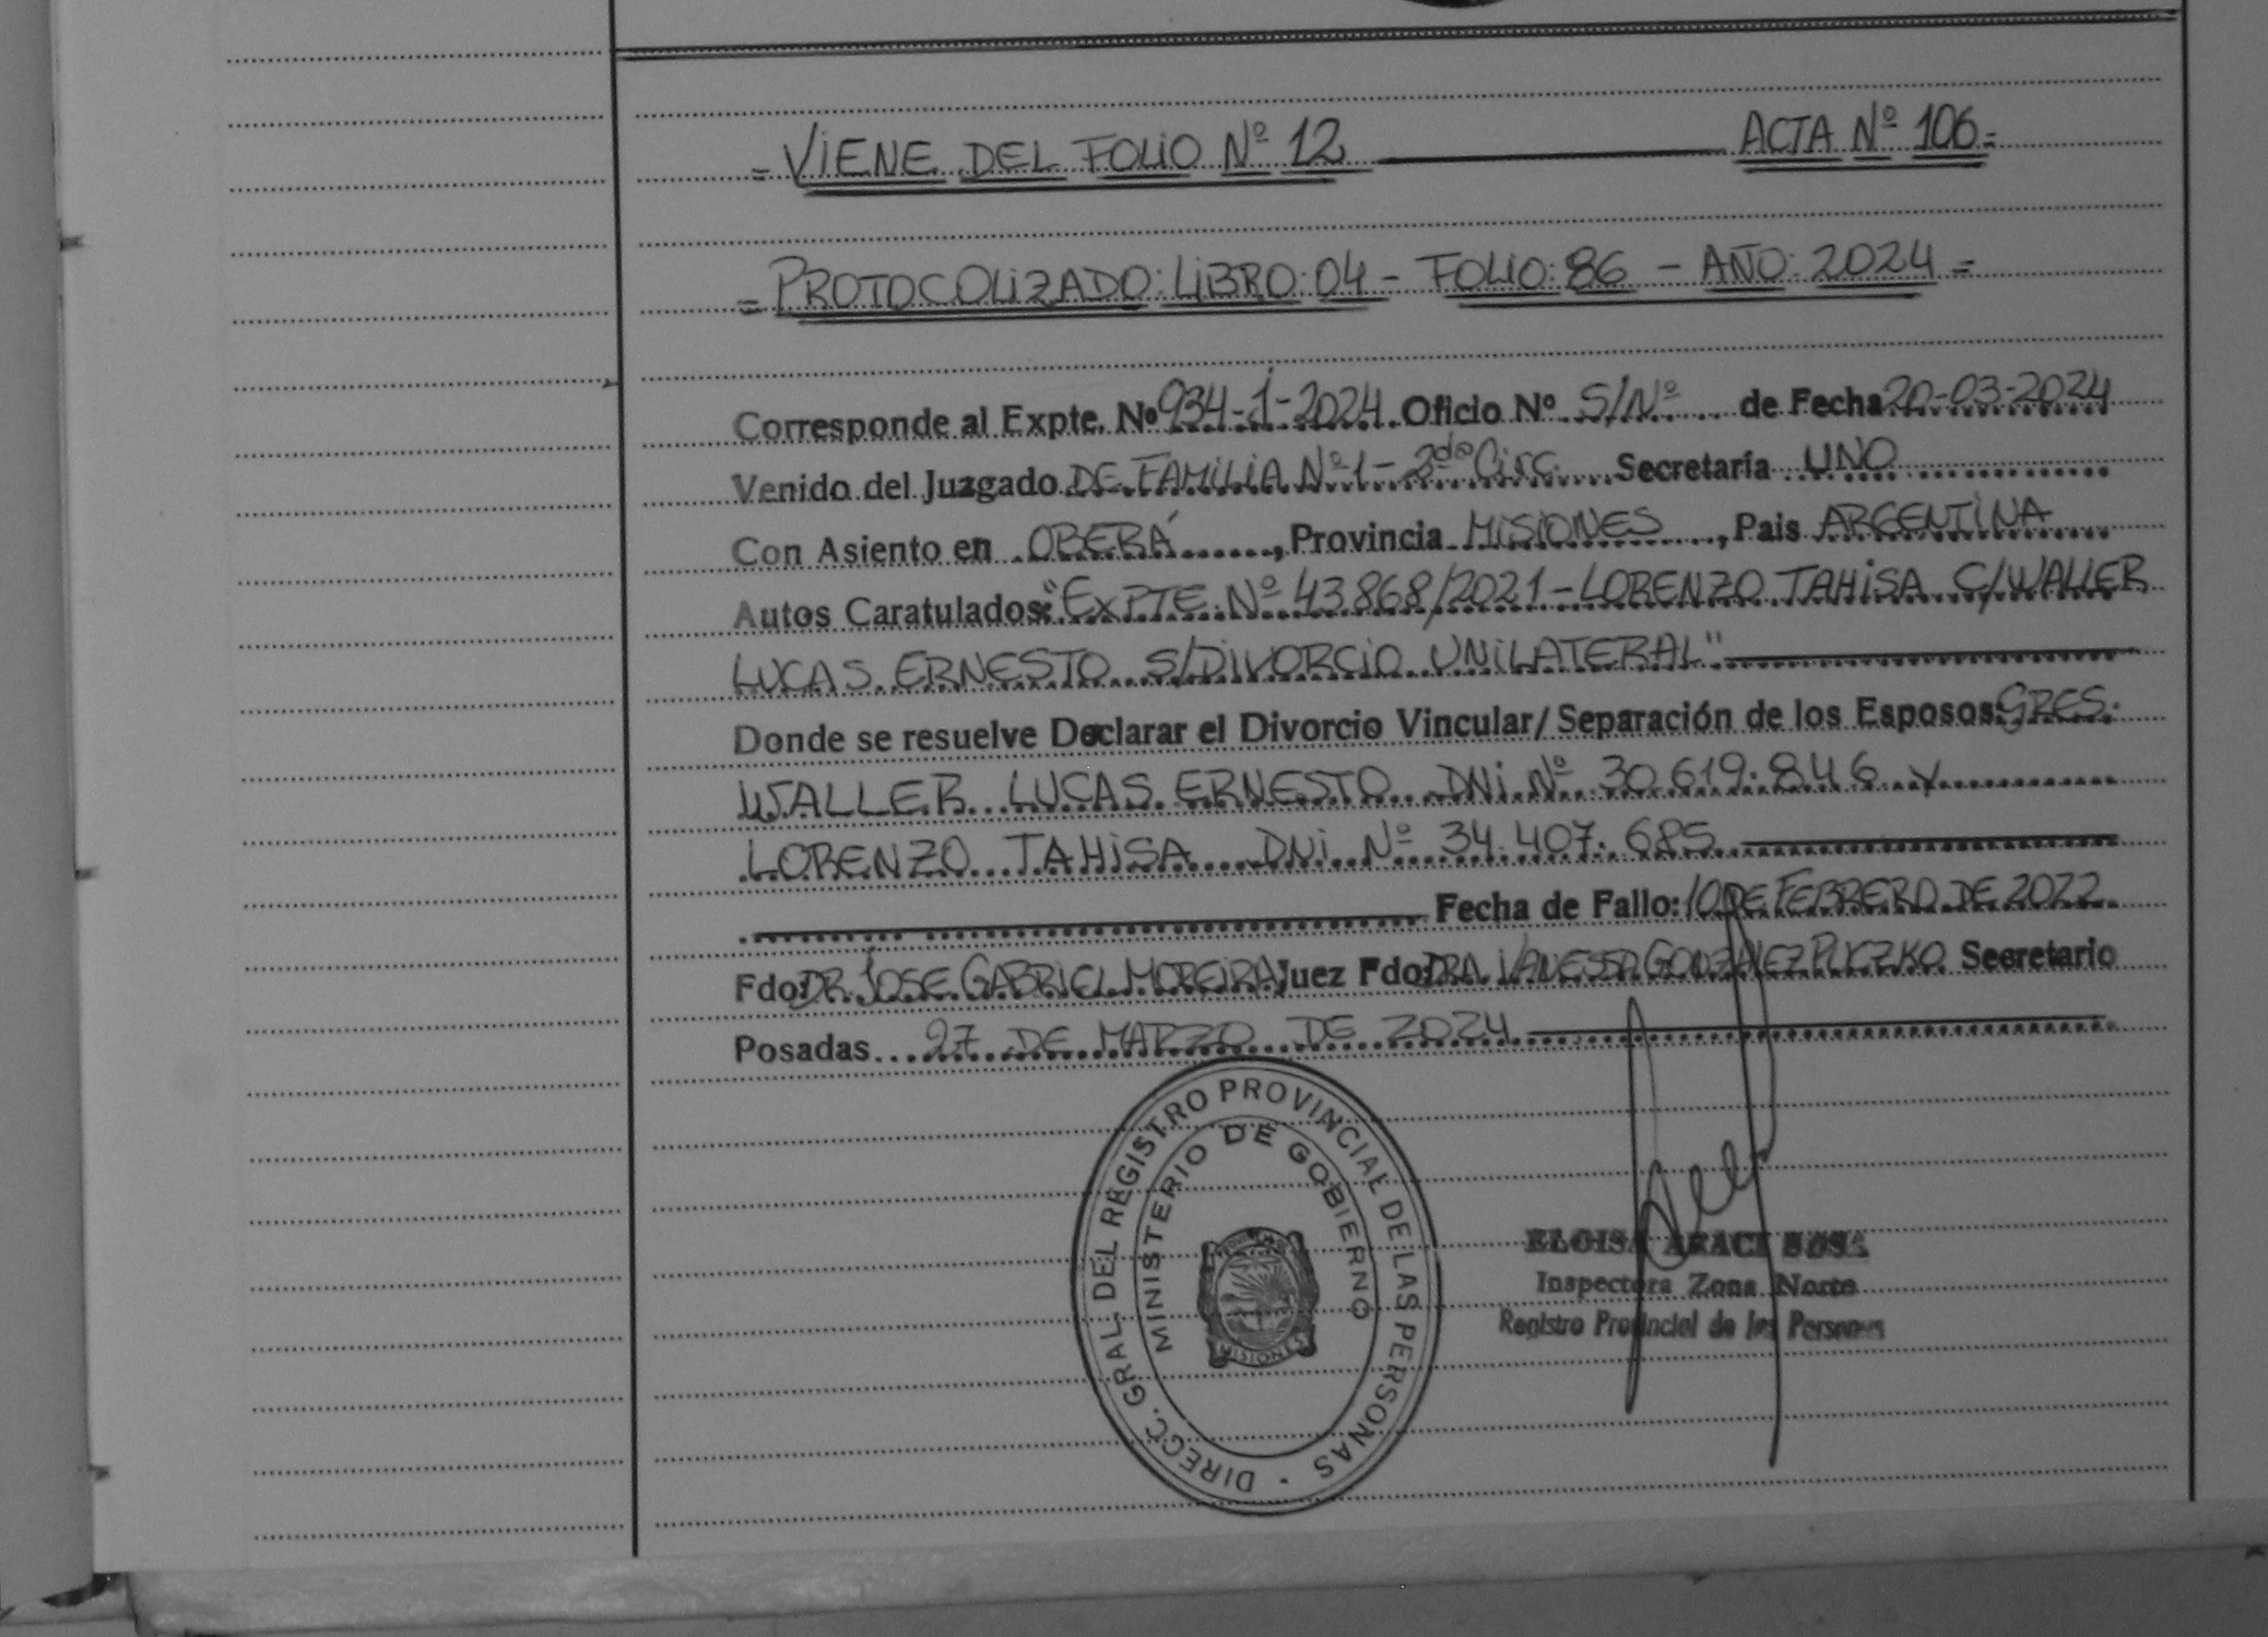 = VIENE DEL FOLIO Nº 12 ACTA Nº 106 =
= PROTOCOLIZADO: LIBRO: 04 - FOLIO: 86 - AÑO: 2024 =
Corresponde al Expte. Nº 934-1-2024 Oficio Nº S/Nº de Fecha 20-03-2024
Venido del Juzgado DE FAMILIA Nº 1 - 2da Circ. Secretaría UNO
Con Asiento en OBERÁ, Provincia MISIONES, Pais ARGENTINA
Autos Caratulados: "EXPTE. Nº 43868/2021 - LORENZO TAHISA C/WALLER
LUCAS ERNESTO S/DIVORCIO UNILATERAL"
Donde se resuelve Declarar el Divorcio Vincular/ Separación de los Esposos: SRES.
WALLER LUCAS ERNESTO DNI Nº 30.619.846 y
LORENZO TAHISA DNI Nº 34.407.685
Fecha de Fallo: 10 DE FEBRERO DE 2022
Fdo: DR. JOSE GABRIEL MOREIRA Juez Fdo: DRA. VANESSA GONZALEZ Secretario
Posadas 27 DE MARZO DE 2024
DIRECC. GRAL. DEL REGISTRO PROVINCIAL DE LAS PERSONAS
MINISTERIO DE GOBIERNO
MISIONES
ELOISA ARACI SOSA
Inspectora Zona Norte
Registro Provincial de las Personas